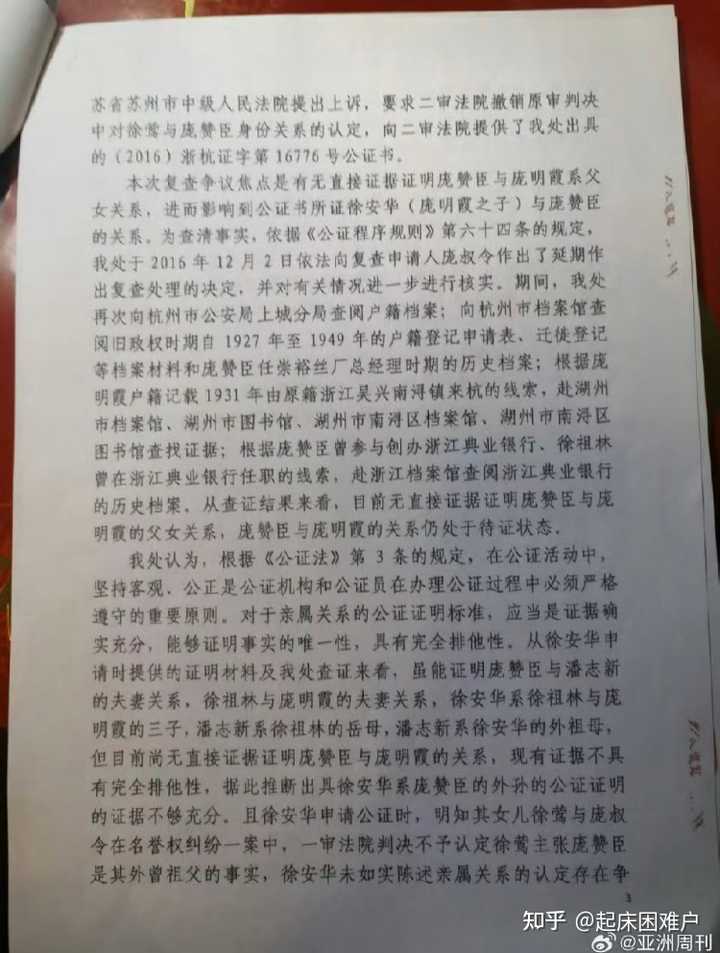 苏省苏州市中级人民法院提出上诉，要求二审法院撤销原审判决
中对徐莺与庞赞臣身份关系的认定，向二审法院提供了我处出具
的（2016）浙杭证字第 16776 号公证书。
本次复查争议焦点是有无直接证据证明庞赞臣与庞明霞系父
女关系，进而影响到公证书所证徐安华（庞明霞之子）与庞赞臣
的关系。为查清事实，依据《公证程序规则》第六十四条的规定，
我处于 2016 年 12 月 2 日依法向复查申请人庞叔令作出了延期作
出复查处理的决定，并对有关情况进一步进行核实。期间，我处
再次向杭州市公安局上城分局查阅户籍档案；向杭州市档案馆查
阅旧政权时期自 1927 年至 1949 年的户籍登记申请表、迁徙登记
等档案材料和庞赞臣任崇裕丝厂总经理时期的历史档案；根据庞
明霞户籍记载 1931 年由原籍浙江吴兴南浔镇来杭的线索，赴湖州
市档案馆、湖州市图书馆、湖州市南浔区档案馆、湖州市南浔区
图书馆查找证据；根据庞赞臣曾参与创办浙江典业银行、徐祖林
曾在浙江典业银行任职的线索，赴浙江档案馆查阅浙江典业银行
的历史档案。从查证结果来看，目前无直接证据证明庞赞臣与庞
明霞的父女关系，庞赞臣与庞明霞的关系仍处于待证状态。
我处认为，根据《公证法》第 3 条的规定，在公证活动中，
坚持客观、公正是公证机构和公证员在办理公证过程中必须严格
遵守的重要原则。对于亲属关系的公证证明标准，应当是证据确
实充分，能够证明事实的唯一性，具有完全排他性。从徐安华申
请时提供的证明材料及我处查证来看，虽能证明庞赞臣与潘志新
的夫妻关系，徐祖林与庞明霞的夫妻关系，徐安华系徐祖林与庞
明霞的三子，潘志新系徐祖林的岳母，潘志新系徐安华的外祖母，
但目前尚无直接证据证明庞赞臣与庞明霞的关系，现有证据不具
有完全排他性，据此推断出具徐安华系庞赞臣的外孙的公证证明
的证据不够充分。且徐安华申请公证时，明知其女儿徐莺与庞叔
令在名誉权纠纷一案中，一审法院判决不予认定徐莺主张庞赞臣
是其外曾祖父的事实，徐安华未如实陈述亲属关系的认定存在争
3
知乎 @起床困难户
@亚洲周刊